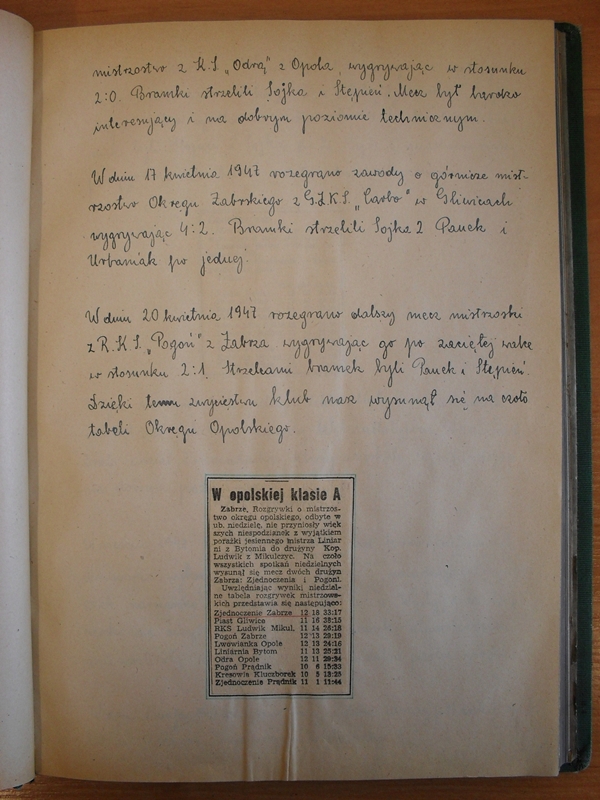 mistrzostwo z K.S. „Odrą” z Opola, wygrywając w stosunku
2:0. Bramki strzelili Sojka i Stępień. Mecz był bardzo
interesujący i na dobrym poziomie technicznym.
W dniu 17 kwietnia 1947 rozegrano zawody o górnicze mist-
rzostwo Okręgu Zabrskiego z G.Z.K.S. „Carbo” w Gliwicach
wygrywając 4:2. Bramki strzelili Sojka 2 Panek i
Urbaniak po jednej.
W dniu 20 kwietnia 1947 rozegrano dalszy mecz mistrzoski
z R.K.S. „Pogoń” z Zabrza wygrywając go po zaciętej walce
w stosunku 2:1. Strzelcami bramek byli Panek i Stępień.
Dzięki temu zwycięstwu klub nasz wysunął się na czoło
tabeli Okręgu Opolskiego.
W opolskiej klasie A
Zabrze, Rozgrywki o mistrzos-
two okręgu opolskiego, odbyte w
ub. niedzielę, nie przyniosły więk
szych niespodzianek z wyjątkiem
porażki jesiennego mistrza Liniar
ni z Bytomia do drużyny Kop.
Ludwik z Mikulczyc. Na czoło
wszystkich spotkań niedzielnych
wysunął się mecz dwóch drużyn
Zabrza: Zjednoczenia i Pogoni.
Uwzlędniając wyniki niedziel-
ne tabela rozgrywek mistrzows-
kich przedstawia się następująco:
Zjednoczenie Zabrze 12 18 33:17
Piast Gliwice 11 16 38:15
RKS Ludwik Mikul. 11 14 26:18
Pogoń Zabrze 12 13 29:19
Lwowianka Opole 12 13 24:16
Liniarnia Bytom 11 13 25:21
Odra Opole 12 11 29:34
Pogoń Prądnik 10 6 15:33
Kresowia Kluczborek 10 5 13:25
Zjednoczenie Prądnik 11 1 11:44